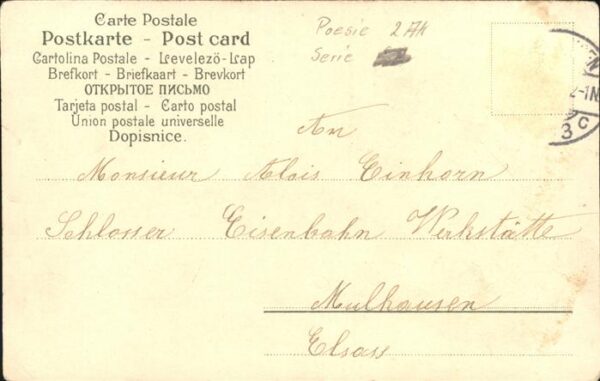 Carte Postale
Postkarte - Post card
Cartolina Postale - Levelező-Lap
Brefkort - Briefkaart - Brevkort
ОТКРЫТОЕ ПИСЬМО
Tarjeta postal - Carto postal
Union postale universelle
Dopisnice.
Poesie 2 Ak
Serie
2-1N
3 c
An
Monsieur Alois Einhorn
Schlosser Eisenbahn Werkstätte
Mulhausen
Elsass